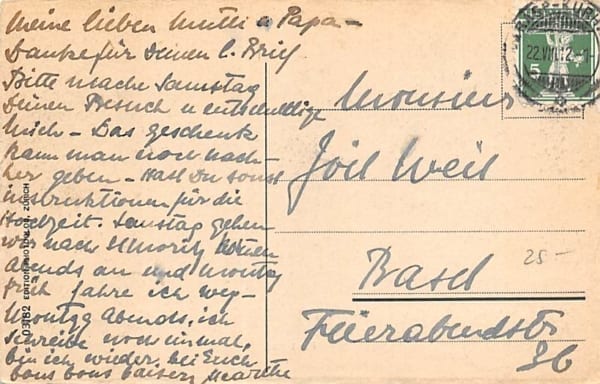 Meine lieben Mutti u Papa –
Danke für Deinen l. Brief
Bitte mache Samstag
Deinen Besuch u entschuldige
mich – Das geschenk
kann man noch nach-
her geben – Hast Du sonst
instruktionen für die
Hochzeit. Samstag gehen
wir nach St Moritz
Abends an und Montag
früh fahre ich weg –
Montag Abends, ich
schreibe noch einmal,
bin ich wieder bei Euch
bons bons baisers Marthe
Monsieur
Joël Weil
Basel
Feierabendstr
36
25–
22.VII.12
5